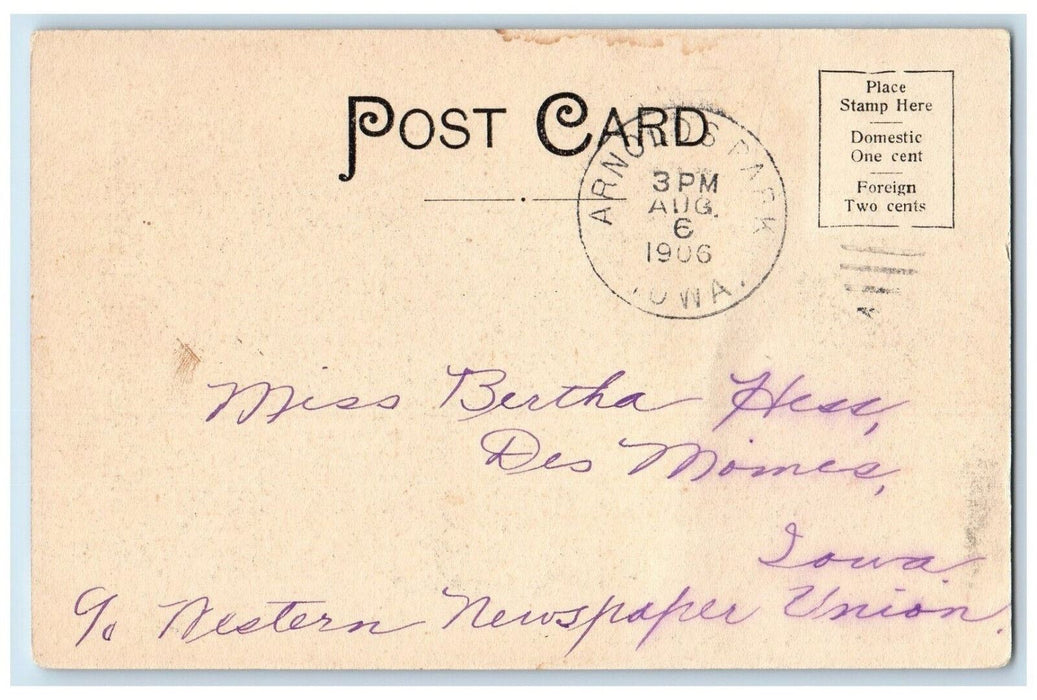 POST CARD
Place
Stamp Here
Domestic
One cent
Foreign
Two cents
ARNOLDS PARK
3 PM
AUG.
6
1906
IOWA.
Miss Bertha Hess,
Des Moines,
Iowa.
c/o Western Newspaper Union.